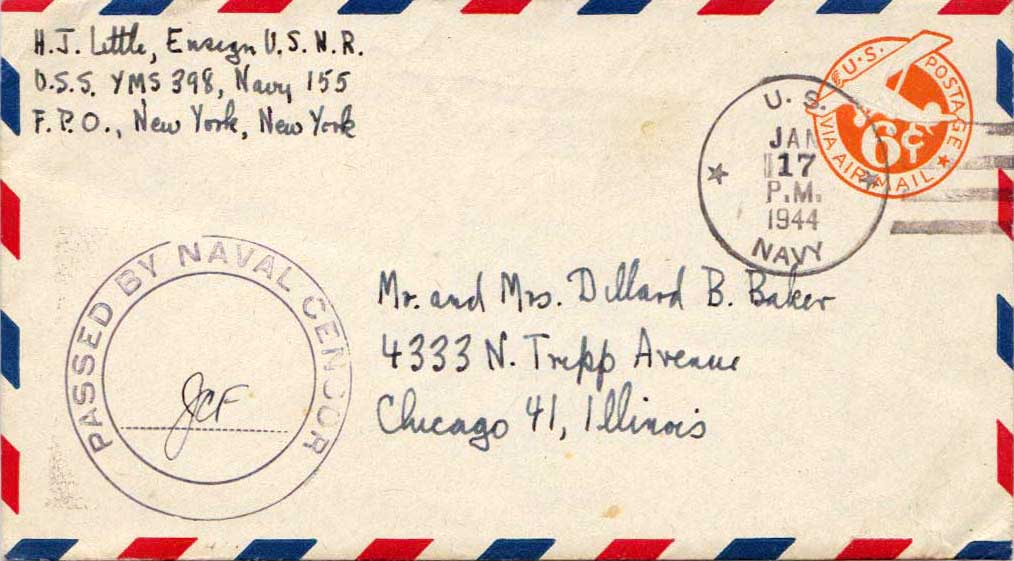 H.J. Little, Ensign U.S.N.R.
U.S.S. YMS 398, Navy 155
F.P.O., New York, New York
U.S. POSTAGE
6¢
VIA AIR MAIL
U. S.
JAN
17
P.M.
1944
NAVY
PASSED BY NAVAL CENSOR
JCF
Mr. and Mrs. Dillard B. Baker
4333 N. Tripp Avenue
Chicago 41, Illinois